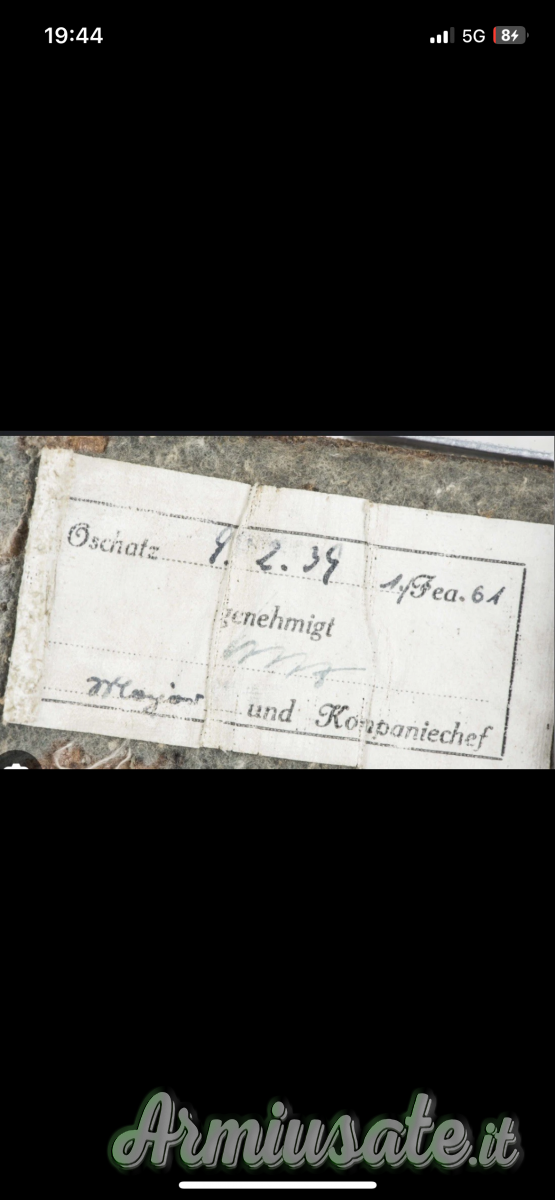 19:44 5G 8
Oschatz 9. 2. 39 1./Fea. 61
genehmigt
Major und Kompaniechef
Armiusate.it